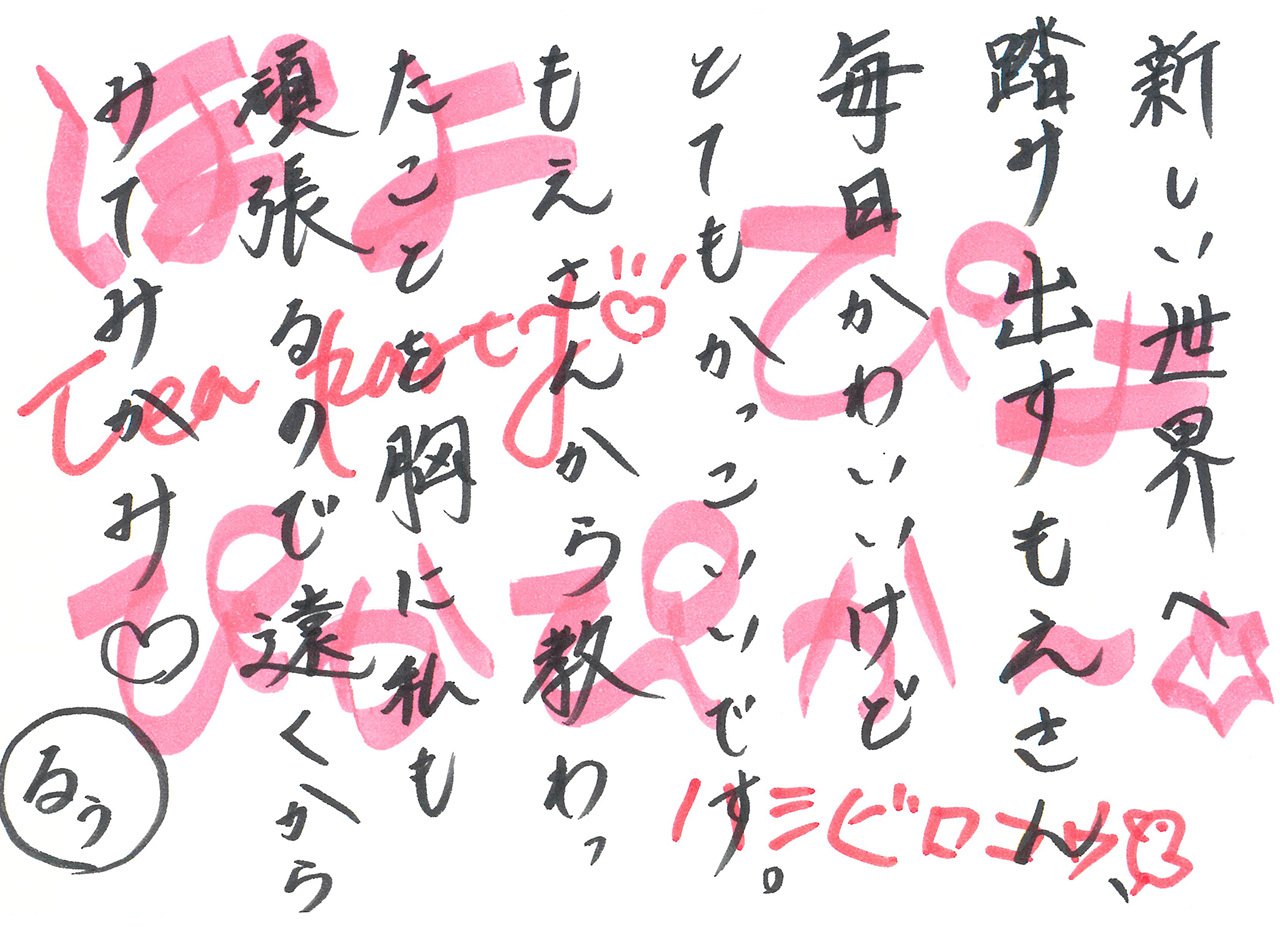 新しい世界へ
踏み出すもえさん、
毎日かわいいけど
とてもかっこいいです。
もえさんから教わっ
たことを胸に私も
頑張るので遠くから
みてみかみ♡
るぅ
ぽよ
ぴよ
Tea party♡
ぴかぴかー☆
ハシビロコウ